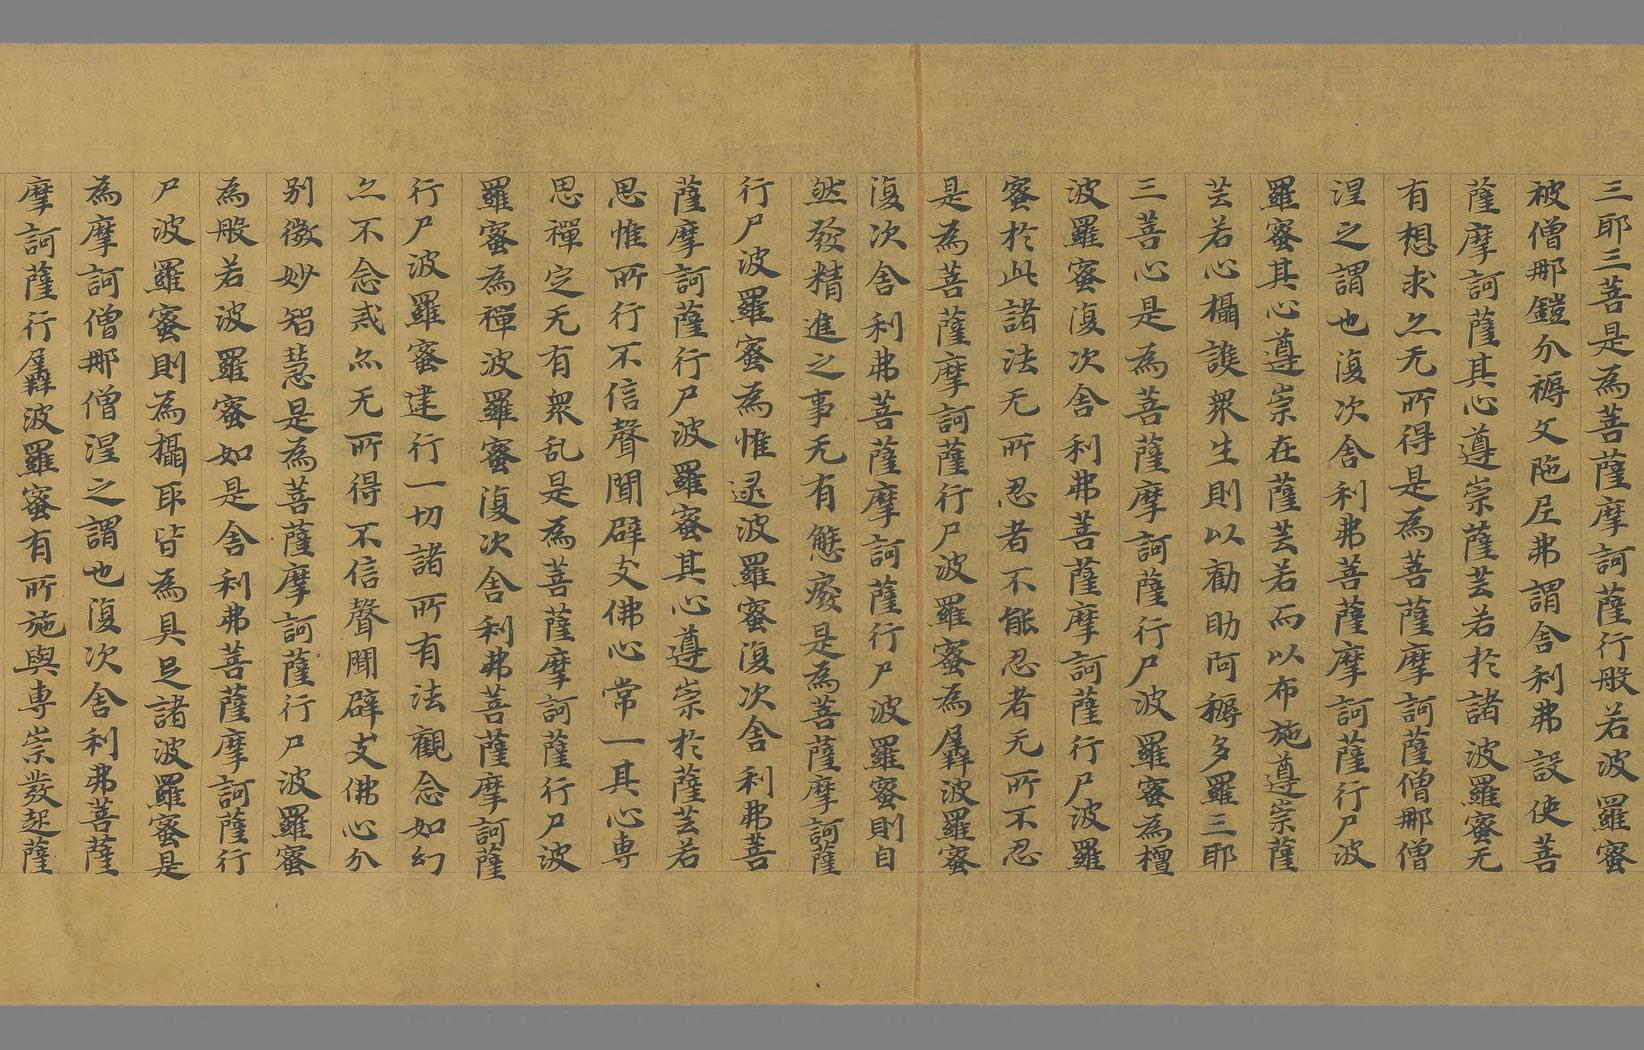 三耶三菩是為菩薩摩訶薩行般若波羅蜜
被僧那鎧分耨文陁尼弗謂舍利弗設使菩
薩摩訶薩其心遵崇薩芸若於諸波羅蜜无
有想求亦无所得是為菩薩摩訶薩僧那僧
涅之謂也復次舍利弗菩薩摩訶薩行尸波
羅蜜其心遵崇在薩芸若而以布施遵崇薩
芸若心攝護衆生則以勸助阿耨多羅三耶
三菩心是為菩薩摩訶薩行尸波羅蜜為檀
波羅蜜復次舍利弗菩薩摩訶薩行尸波羅
蜜於此諸法无所忍者不能忍者无所不忍
是為菩薩摩訶薩行尸波羅蜜為羼波羅蜜
復次舍利弗菩薩摩訶薩行尸波羅蜜則自
然發精進之事无有懈癈是為菩薩摩訶薩
行尸波羅蜜為惟逮波羅蜜復次舍利弗菩
薩摩訶薩行尸波羅蜜其心遵崇於薩芸若
思惟所行不信聲聞辟支佛心常一其心専
思禪定无有衆乱是為菩薩摩訶薩行尸波
羅蜜為禪波羅蜜復次舍利弗菩薩摩訶薩
行尸波羅蜜建行一切諸所有法觀念如幻
亦不念惑亦无所得不信聲聞辟支佛心分
别微妙智慧是為菩薩摩訶薩行尸波羅蜜
為般若波羅蜜如是舍利弗菩薩摩訶薩行
尸波羅蜜則為攝取皆為具足諸波羅蜜是
為摩訶僧那僧涅之謂也復次舍利弗菩薩
摩訶薩行羼波羅蜜有所施與専崇發起薩